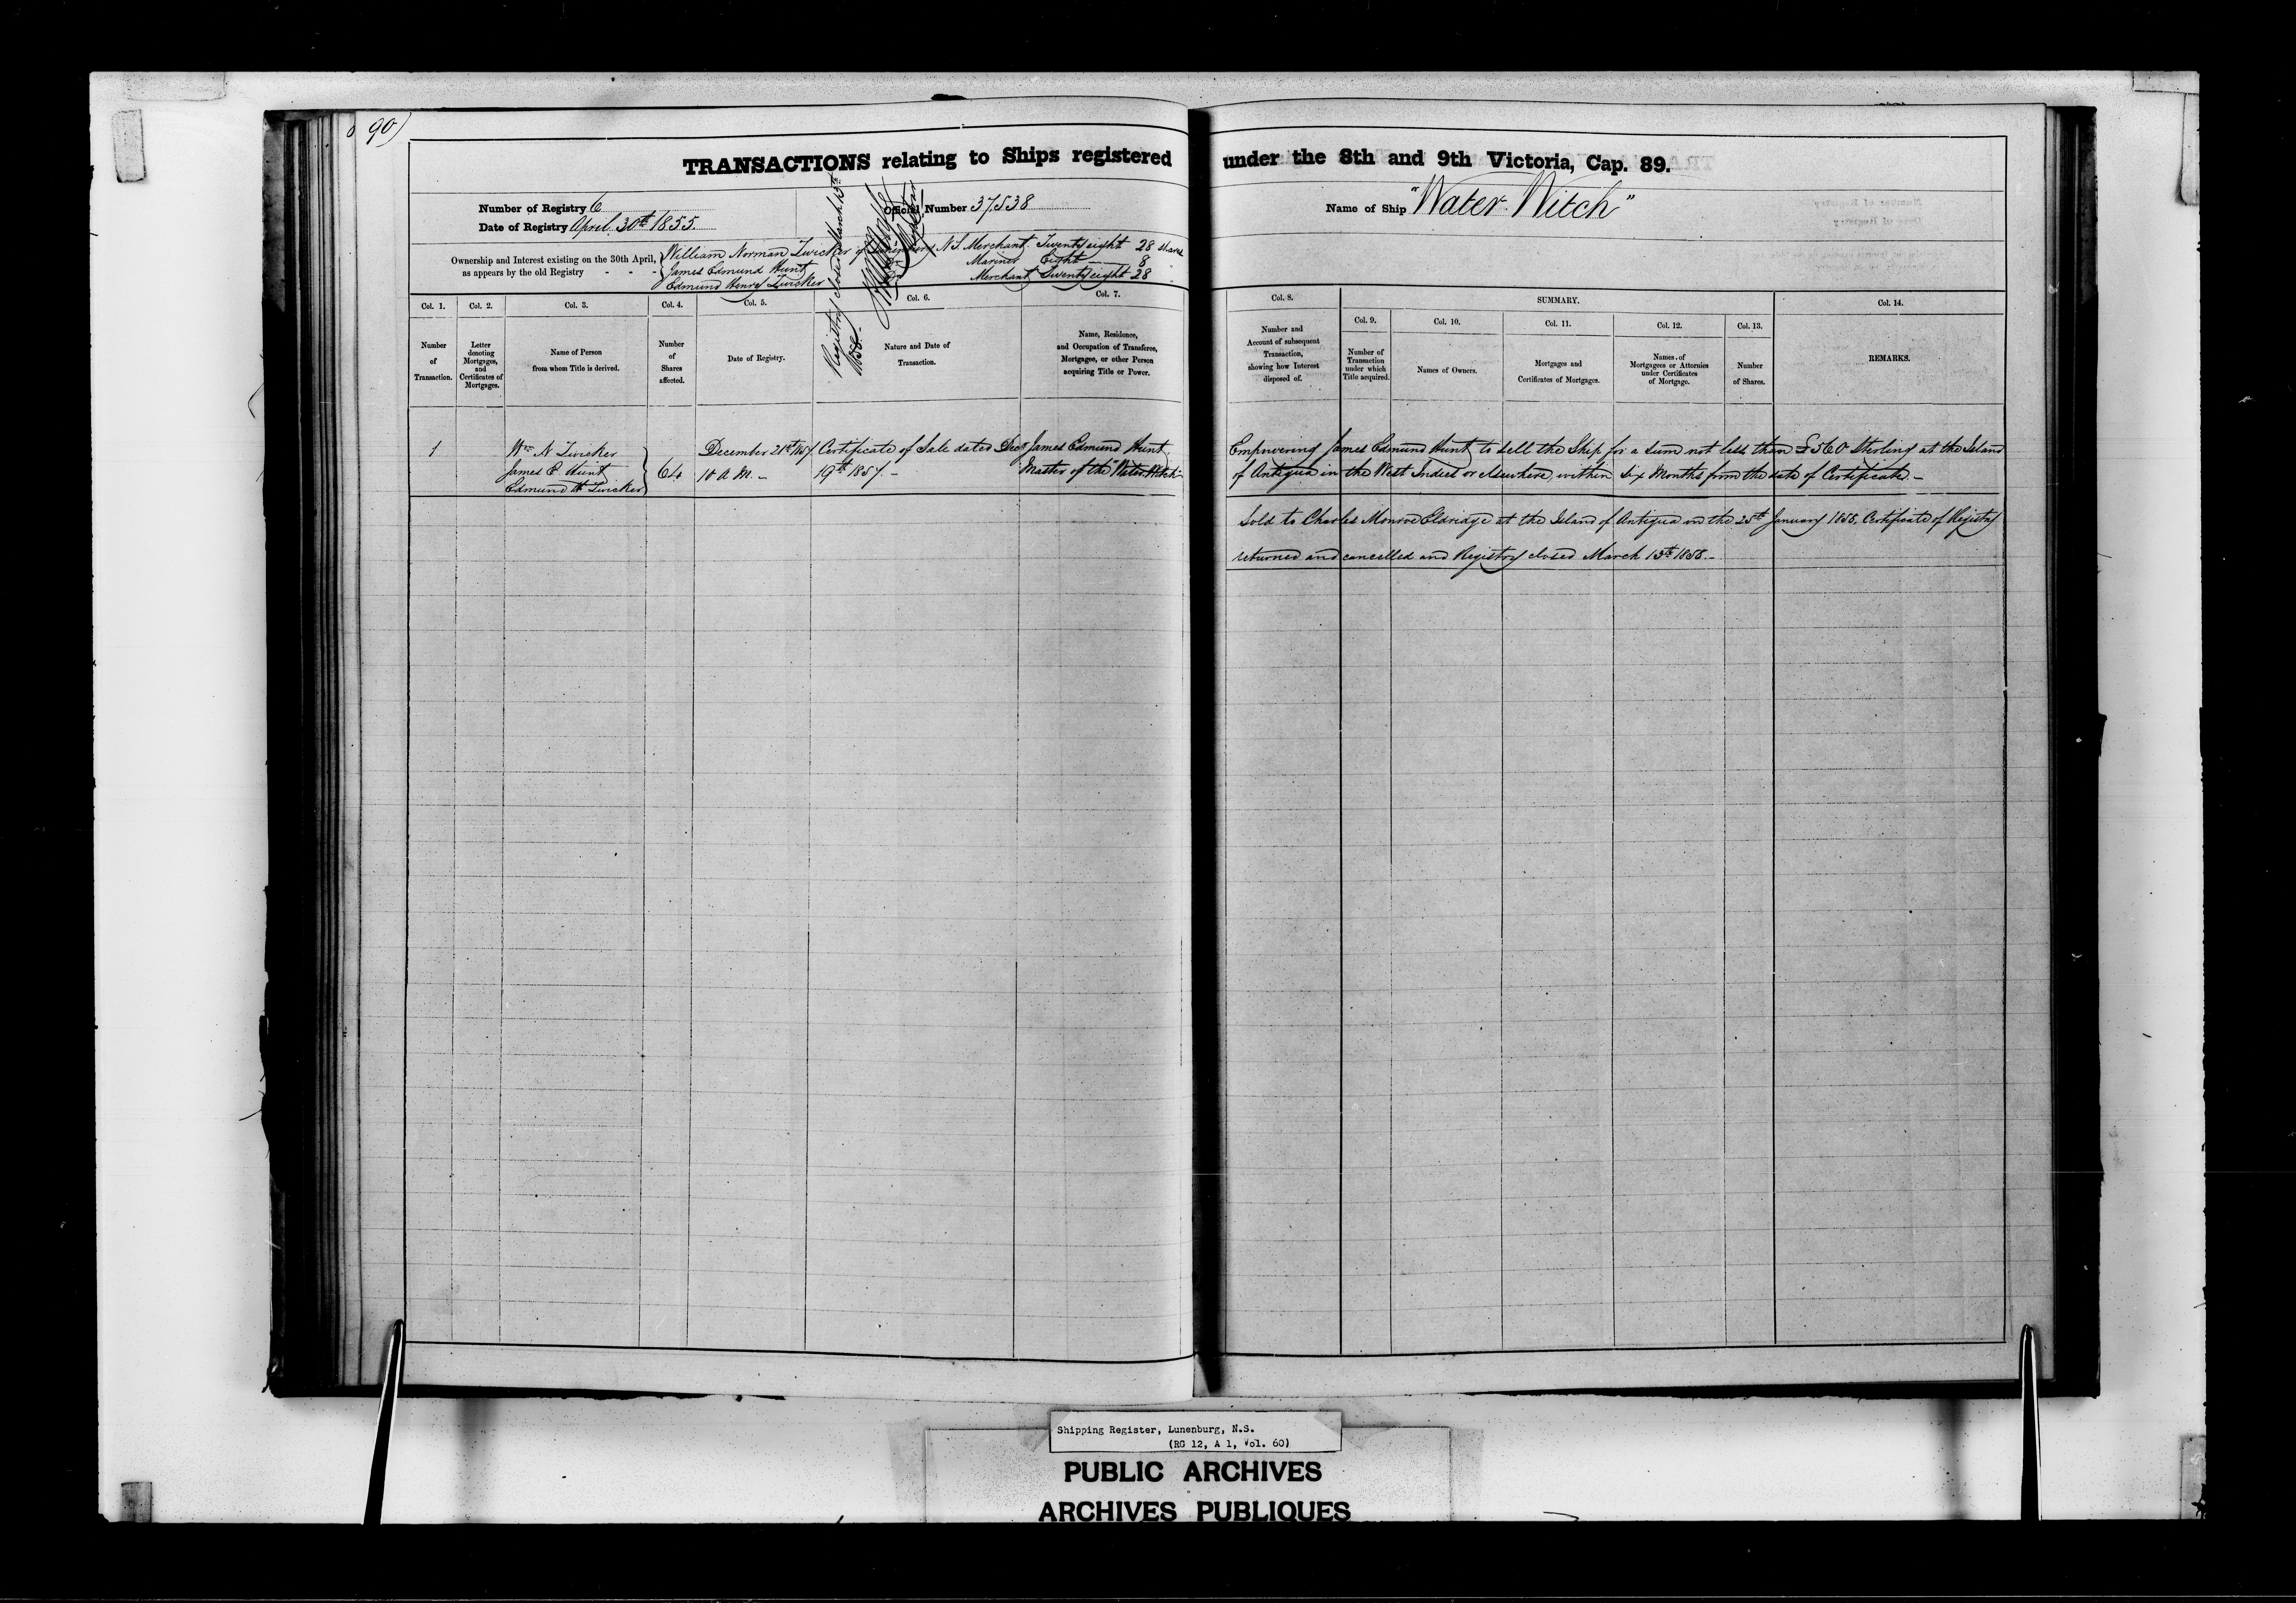 90)
TRANSACTIONS relating to Ships registered under the 8th and 9th Victoria, Cap. 89.
Number of Registry 6
Date of Registry April 30th 1855.
Official Number 37,538
Name of Ship "Water Witch"
Ownership and Interest existing on the 30th April,
as appears by the old Registry - - -
William Norman Zwicker of Lunenburg N.S. Merchant Twenty eight 28 Shares
James Edmund Hunt Mariner Eight 8
Edmund Henry Zwicker Merchant Twenty eight 28
Registry closed March 13th
1858.
Registrar
Col. 1.
Number
of
Transaction.
Col. 2.
Letter
denoting
Mortgages,
and
Certificates of
Mortgages.
Col. 3.
Name of Person
from whom Title is derived.
Col. 4.
Number
of
Shares
affected.
Col. 5.
Date of Registry.
Col. 6.
Nature and Date of
Transaction.
Col. 7.
Name, Residence,
and Occupation of Transferee,
Mortgagee, or other Person
acquiring Title or Power.
Col. 8.
Number and
Account of subsequent
Transaction,
showing how Interest
disposed of.
SUMMARY.
Col. 9.
Number of
Transaction
under which
Title acquired.
Col. 10.
Names of Owners.
Col. 11.
Mortgages and
Certificates of Mortgages.
Col. 12.
Names of
Mortgagees or Attornies
under Certificates
of Mortgage.
Col. 13.
Number
of Shares.
Col. 14.
REMARKS.
1
Wm N Zwicker
James E Hunt
Edmund H Zwicker
64
December 21st 1857
10 A M. -
Certificate of Sale dated Decr
19th 1857. -
James Edmund Hunt
Master of the "Water Witch"
Empowering James Edmund Hunt to sell the Ship for a sum not less than £560 Sterling at the Island
of Antigua in the West Indies or elsewhere, within six Months from the date of Certificate. -
Sold to Charles Monroe Eldridge at the Island of Antigua on the 25th January 1858. Certificate of Registry
returned and cancelled and Registry closed March 13th 1858. -
Shipping Register, Lunenburg, N.S.
(RG 12, A 1, Vol. 60)
PUBLIC ARCHIVES
ARCHIVES PUBLIQUES